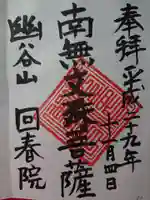 奉拝 平成二十九年
十一月四日
南無文殊菩薩
幽谷山 回春院